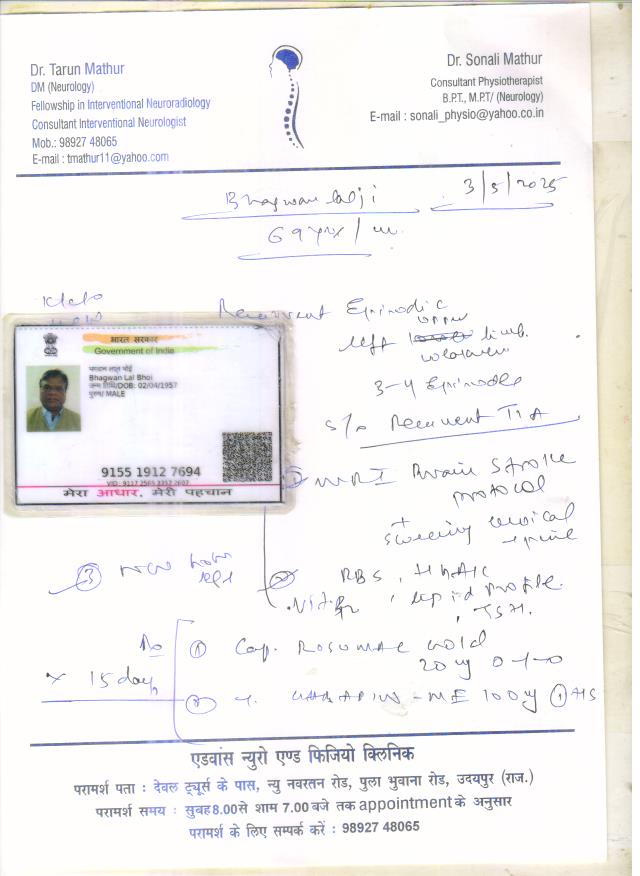 Dr. Tarun Mathur
DM (Neurology)
Fellowship in Interventional Neuroradiology
Consultant Interventional Neurologist
Mob.: 98927 48065
E-mail : tmathur11@yahoo.com
Dr. Sonali Mathur
Consultant Physiotherapist
B.P.T., M.P.T/ (Neurology)
E-mail : sonali_physio@yahoo.co.in
Bhagwan lalji
3/5/2025
69 yrs / m.
Recurrent Episodic
left upper limb.
3-4 Episodes
s/o Recurrent TIA
भारत सरकार
Government of India
भगवान लाल भोई
Bhagwan Lal Bhoi
जन्म तिथि/DOB: 02/04/1957
पुरुष/ MALE
9155 1912 7694
मेरा आधार, मेरी पहचान
① MRI Brain Stroke
protocol
+
screening cervical
spine
② RBS, HbA1C
, lipid profile.
, TSH.
③ NCV
① Cap. ROSUMAC Gold
20 mg 0-1-0
× 15 days
② T. -ME 100 mg ① HS
एडवांस न्युरो एण्ड फिजियो क्लिनिक
परामर्श पता : देवल ट्यूर्स के पास, न्यु नवरतन रोड, पुला भुवाना रोड, उदयपुर (राज.)
परामर्श समय : सुबह 8.00 से शाम 7.00 बजे तक appointment के अनुसार
परामर्श के लिए सम्पर्क करें : 98927 48065